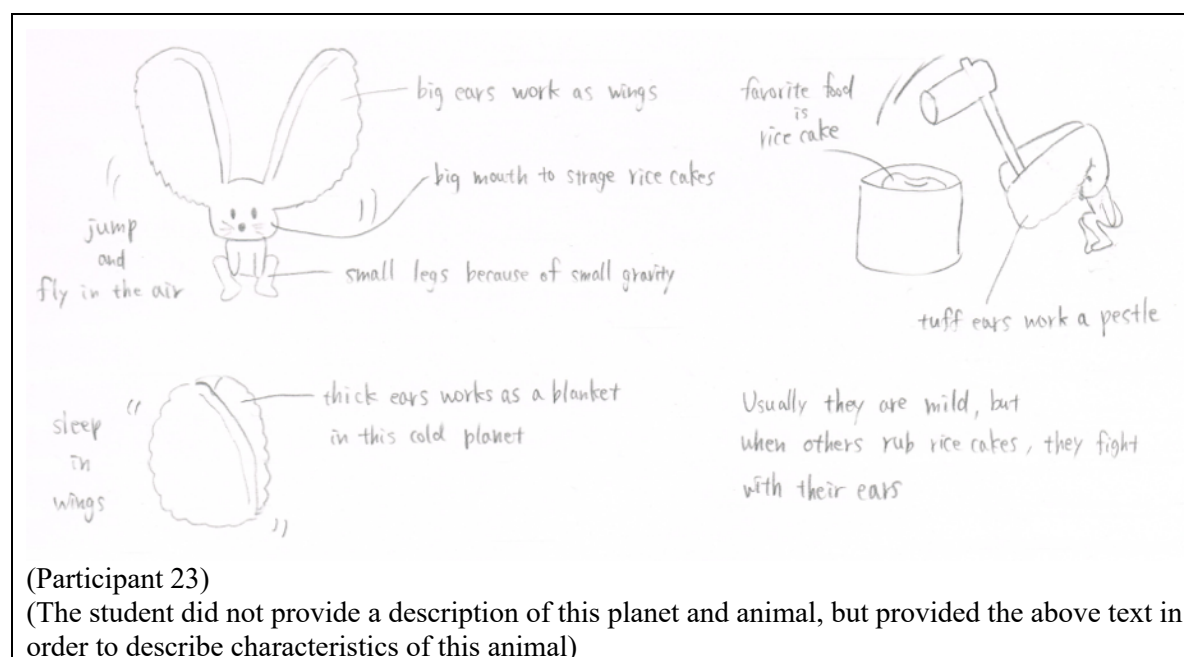 big ears work as wings
big mouth to strage rice cakes
jump
and
fly in the air
small legs because of small gravity
favorite food
is
rice cake
tuff ears work a pestle
sleep
in
wings
thick ears works as a blanket
in this cold planet
Usually they are mild, but
when others rub rice cakes, they fight
with their ears
(Participant 23)
(The student did not provide a description of this planet and animal, but provided the above text in
order to describe characteristics of this animal)